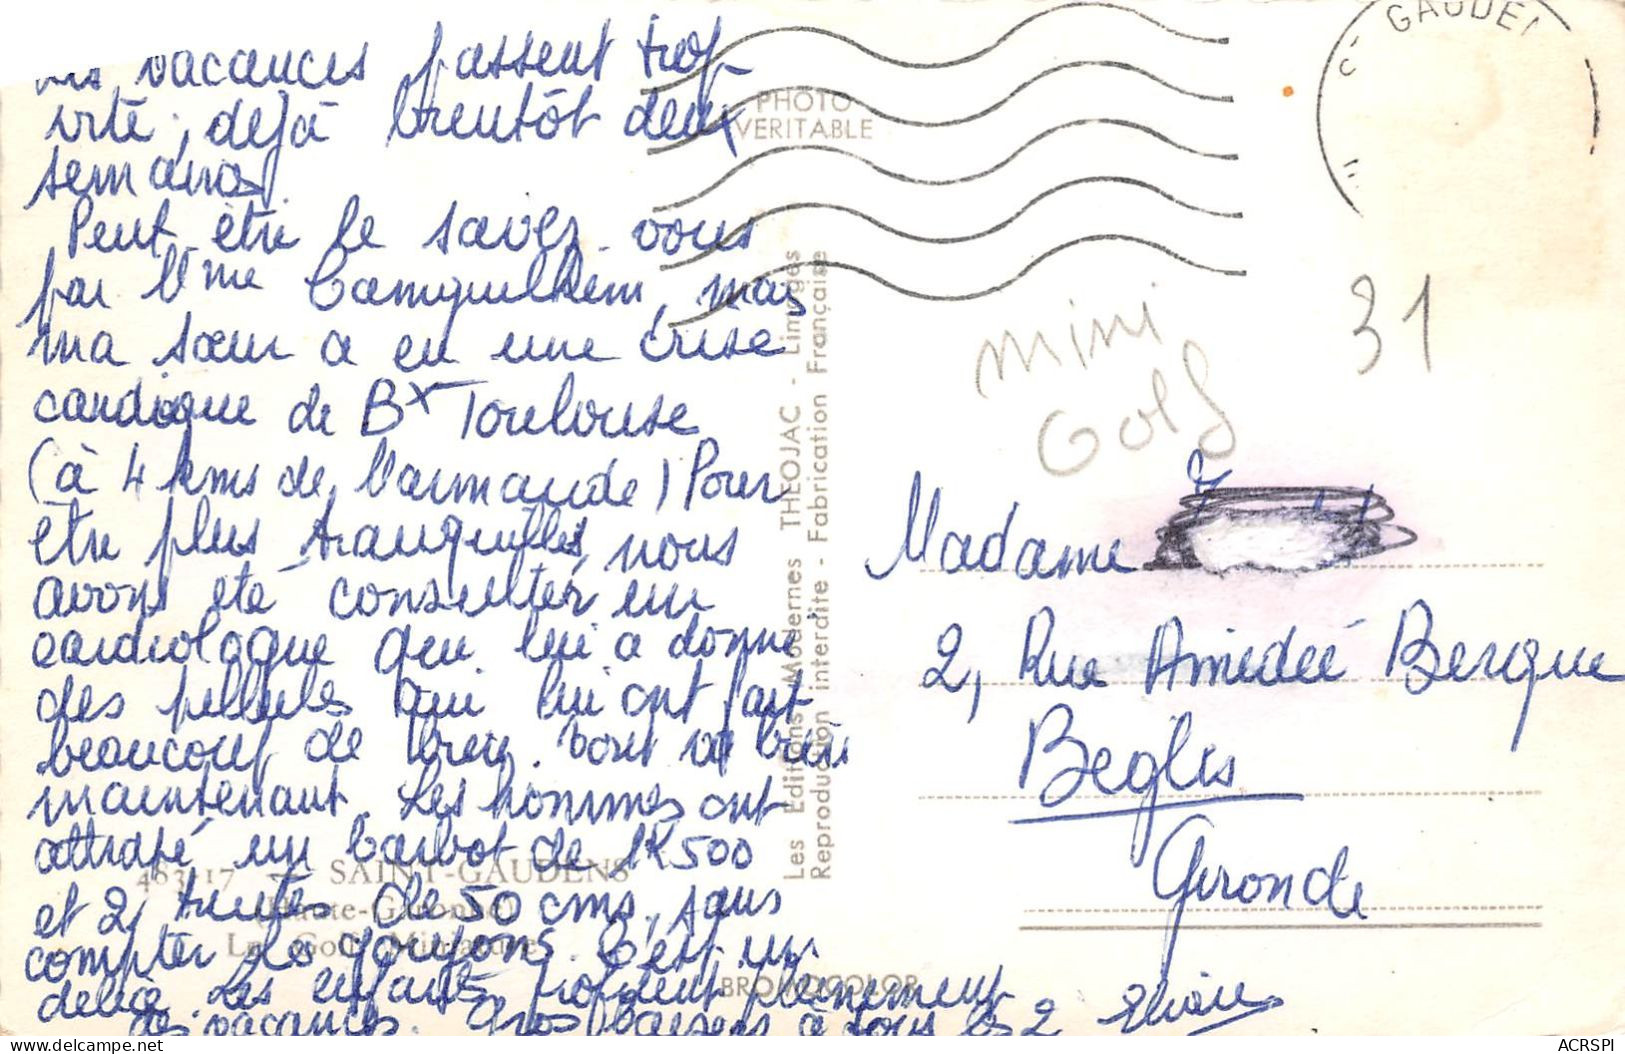 vacances passent trop
vite, déjà bientôt deux
semaines.
Peut être le savez-vous
par Mme mais
ma sœur a eu une crise
cardiaque de Bx Toulouse
(à 4 kms de Marmande) Pour
être plus tranquilles, nous
avons été consulter un
cardiologue qui lui a donné
des pillules qui lui ont fait
beaucoup de bien. Tout va bien
maintenant. Les hommes ont
attrapé un barbot de 1K500
et 2 truites de 50 cms, sans
compter les goujons. C'est un
délice. Les enfants profitent pleinement
des vacances. Gros baisers à tous les 2
483-17 - SAINT-GAUDENS
(Haute-Garonne)
Le Golf Miniature
PHOTO
VERITABLE
Les Editions Modernes THEOJAC - Limoges
Reproduction interdite - Fabrication Française
BROMOCOLOR
GAUDEN
31
mini
Golf
Madame
2, Rue Amédée Berque
Begles
Gironde
ACRSPI